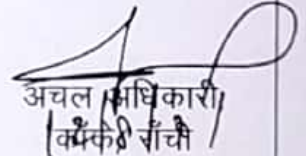 अचल अधिकारी
काँके राँची